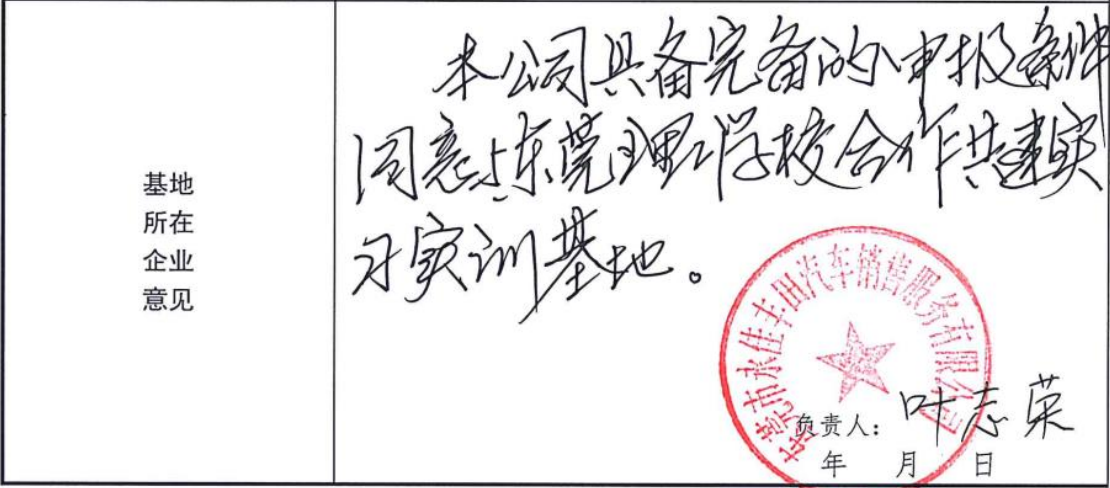 基地
所在
企业
意见
本公司具备完备的申报条件
同意与东莞理工学校合作共建实
习实训基地。
东莞市永佳丰田汽车销售服务有限公司
负责人：叶志荣
年 月 日